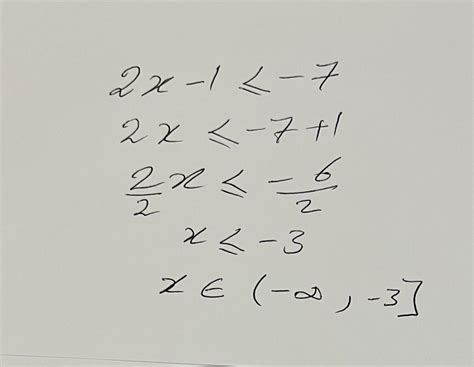 2x - 1 ⩽ -7
2x ⩽ -7 + 1
2/2 x ⩽ - 6/2
x ⩽ -3
x ∈ (-∞, -3]